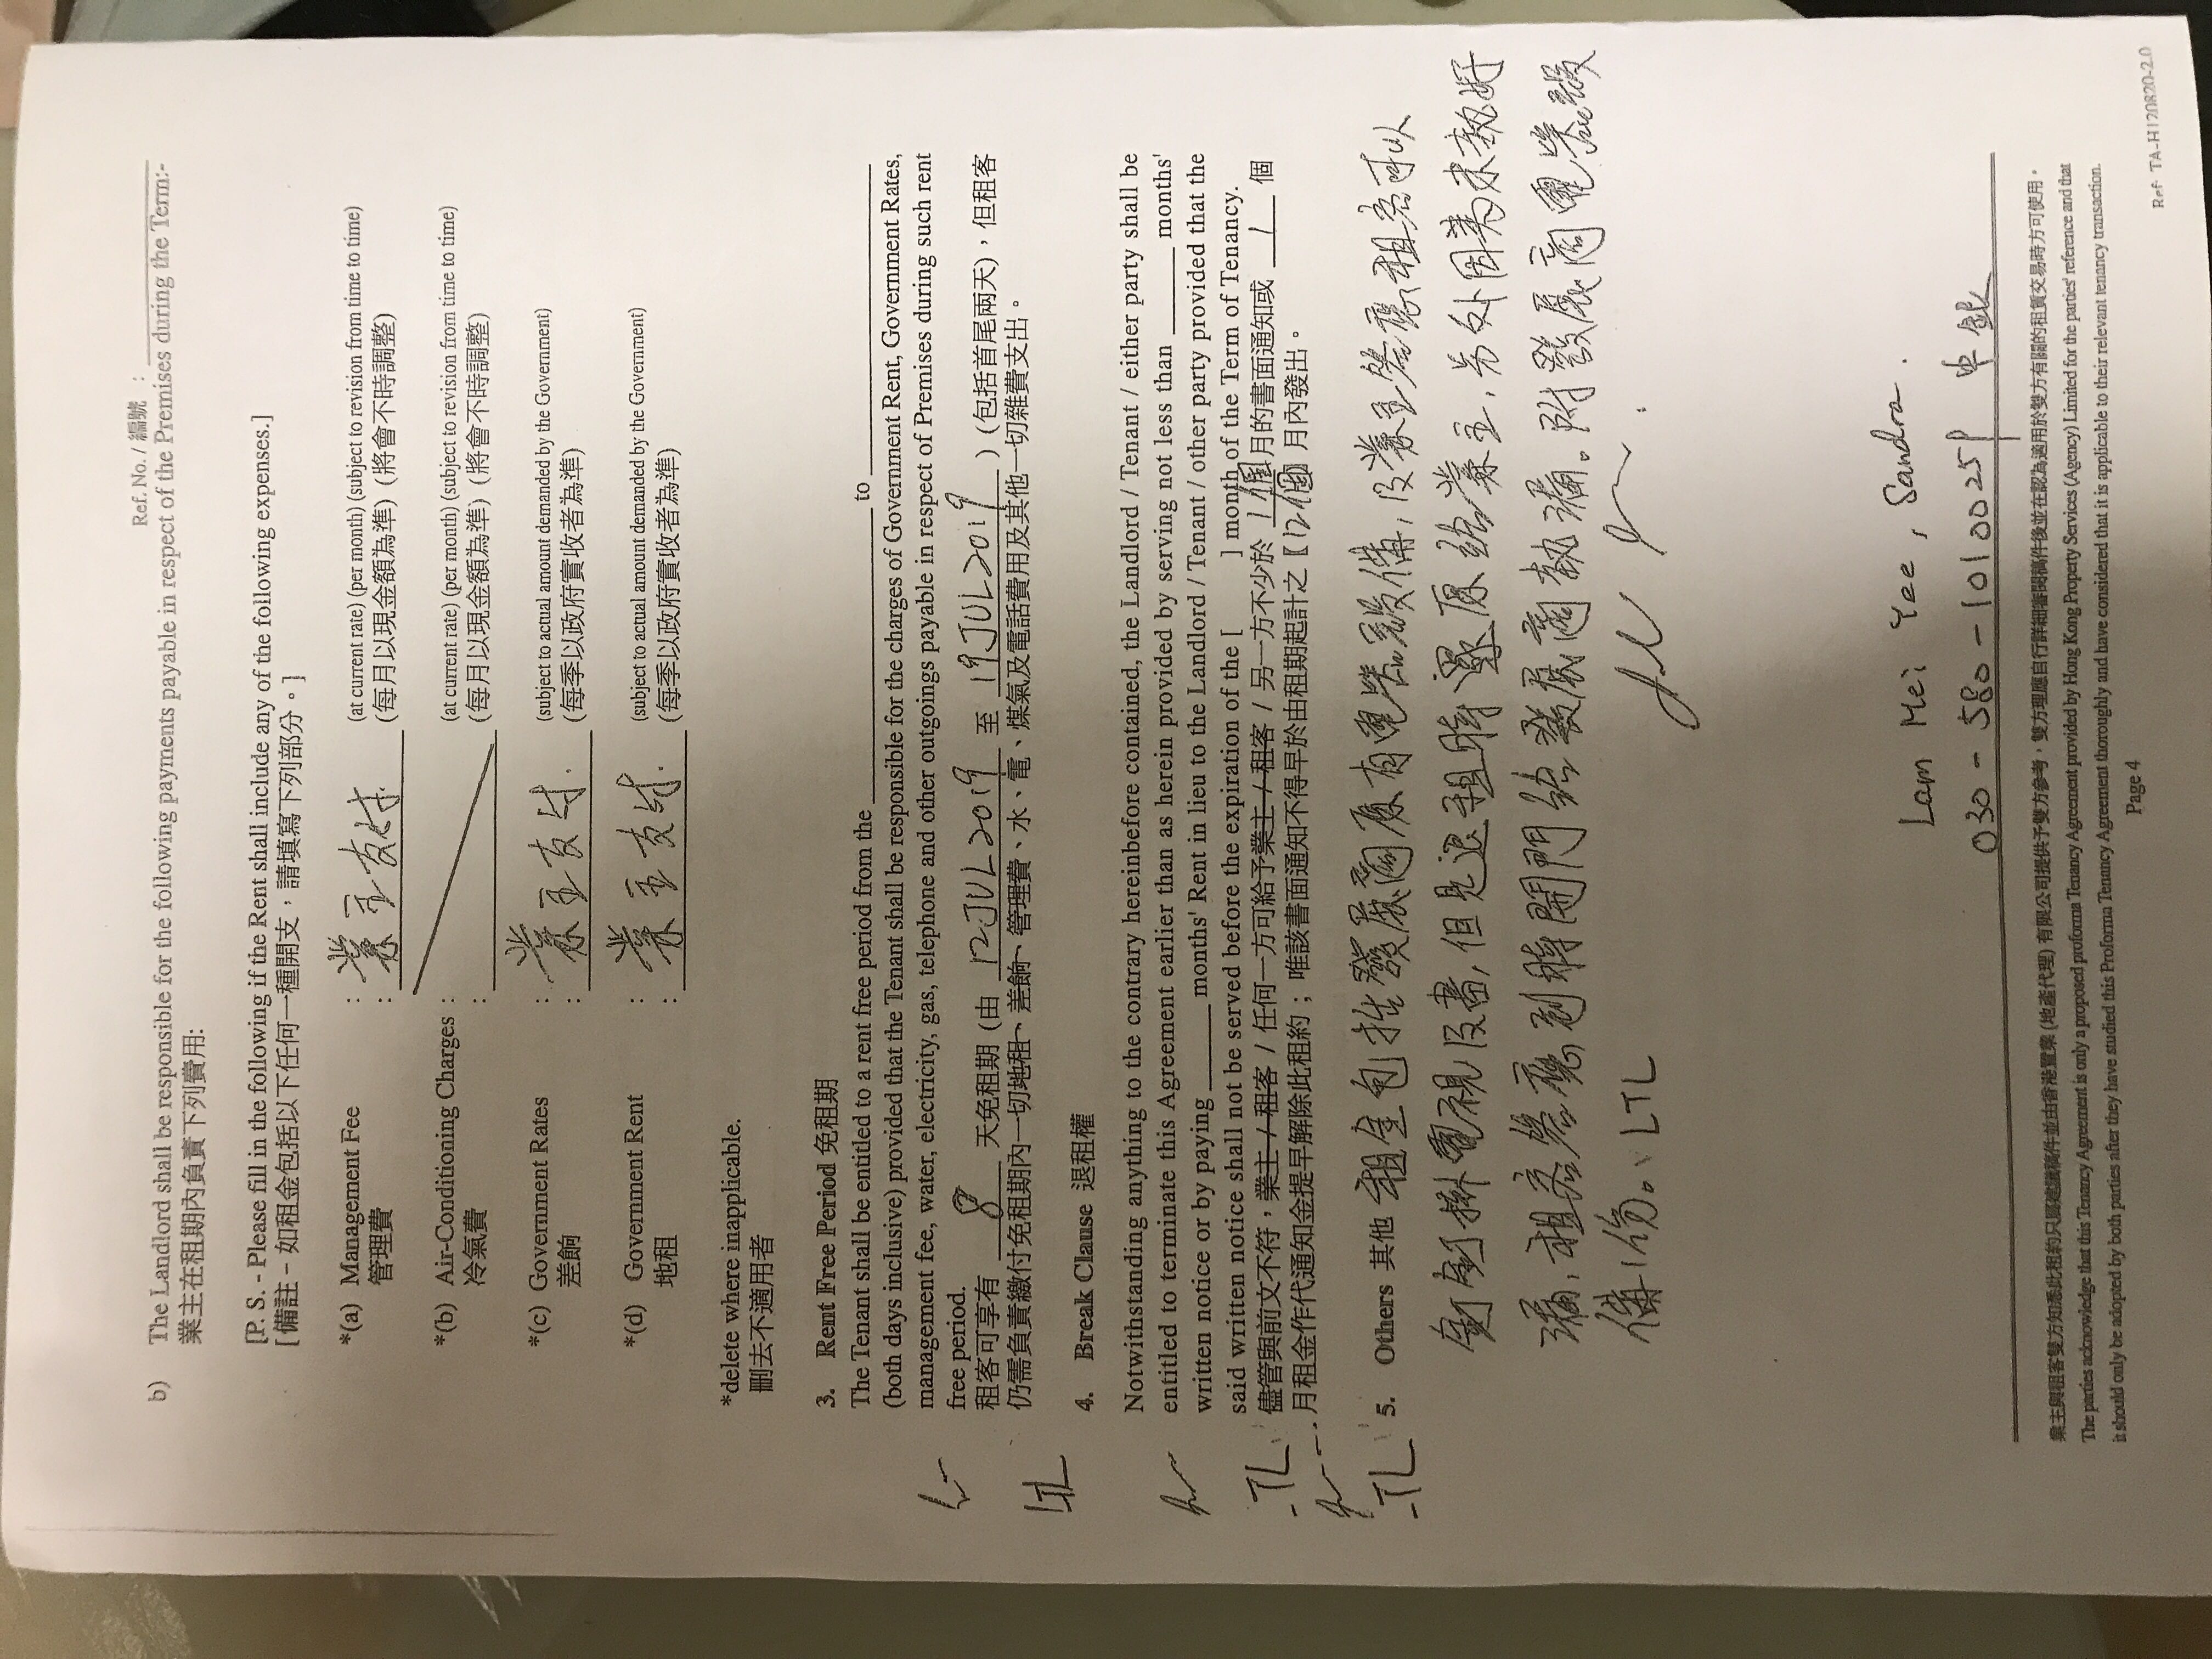 Ref. No. / 編號 :
b) The Landlord shall be responsible for the following payments payable in respect of the Premises during the Term:-
業主在租期內負責下列費用:
[P. S. - Please fill in the following if the Rent shall include any of the following expenses.]
[ 備註 - 如租金包括以下任何一種開支，請填寫下列部分。]
*(a) Management Fee : 業主支付. (at current rate) (per month) (subject to revision from time to time)
管理費 : (每月以現金額為準) (將會不時調整)
*(b) Air-Conditioning Charges : (at current rate) (per month) (subject to revision from time to time)
冷氣費 : (每月以現金額為準) (將會不時調整)
*(c) Government Rates : 業主支付. (subject to actual amount demanded by the Government)
差餉 : (每季以政府實收者為準)
*(d) Government Rent : 業主支付. (subject to actual amount demanded by the Government)
地租 : (每季以政府實收者為準)
*delete where inapplicable.
刪去不適用者
3. Rent Free Period 免租期
The Tenant shall be entitled to a rent free period from the ________ to ________
(both days inclusive) provided that the Tenant shall be responsible for the charges of Government Rent, Government Rates,
management fee, water, electricity, gas, telephone and other outgoings payable in respect of Premises during such rent
free period.
租客可享有 8 天免租期 (由 12 JUL 2019 至 19 JUL 2019 ) (包括首尾兩天)，但租客
仍需負責繳付免租期內一切地租、差餉、管理費、水、電、煤氣及電話費用及其他一切雜費支出。
4. Break Clause 退租權
Notwithstanding anything to the contrary hereinbefore contained, the Landlord / Tenant / either party shall be
entitled to terminate this Agreement earlier than as herein provided by serving not less than ____ months'
written notice or by paying ____ months' Rent in lieu to the Landlord / Tenant / other party provided that the
said written notice shall not be served before the expiration of the [ ] month of the Term of Tenancy.
儘管與前文不符，業主 / 租客 / 任何一方可給予業主 / 租客 / 另一方不少於 1個月的書面通知或 1 個
月租金作代通知金提早解除此租約；唯該書面通知不得早於由租期起計之【12個】月內發出。
TL
5. Others 其他 租金包括發展商原有電器設備，及業主答應租客可以
TL
釘鑽掛電視及畫，但是退租時還原給業主，另外因為未執好
漏，租客答應到時開門給發展商執漏。附發展商電器設
備1份。LTL
Lam Mei Yee, Sandra.
030-580-10100259 中銀
業主與租客雙方知悉此租約只屬建議稿件並由香港置業 (地產代理) 有限公司提供予雙方參考，雙方理應自行詳細審閱稿件後並在認為適用於雙方有關的租賃交易時方可使用。
The parties acknowledge that this Tenancy Agreement is only a proposed proforma Tenancy Agreement provided by Hong Kong Property Services (Agency) Limited for the parties' reference and that
it should only be adopted by both parties after they have studied this Proforma Tenancy Agreement thoroughly and have considered that it is applicable to their relevant tenancy transaction.
Page 4
Ref: TA-H170820-2.0